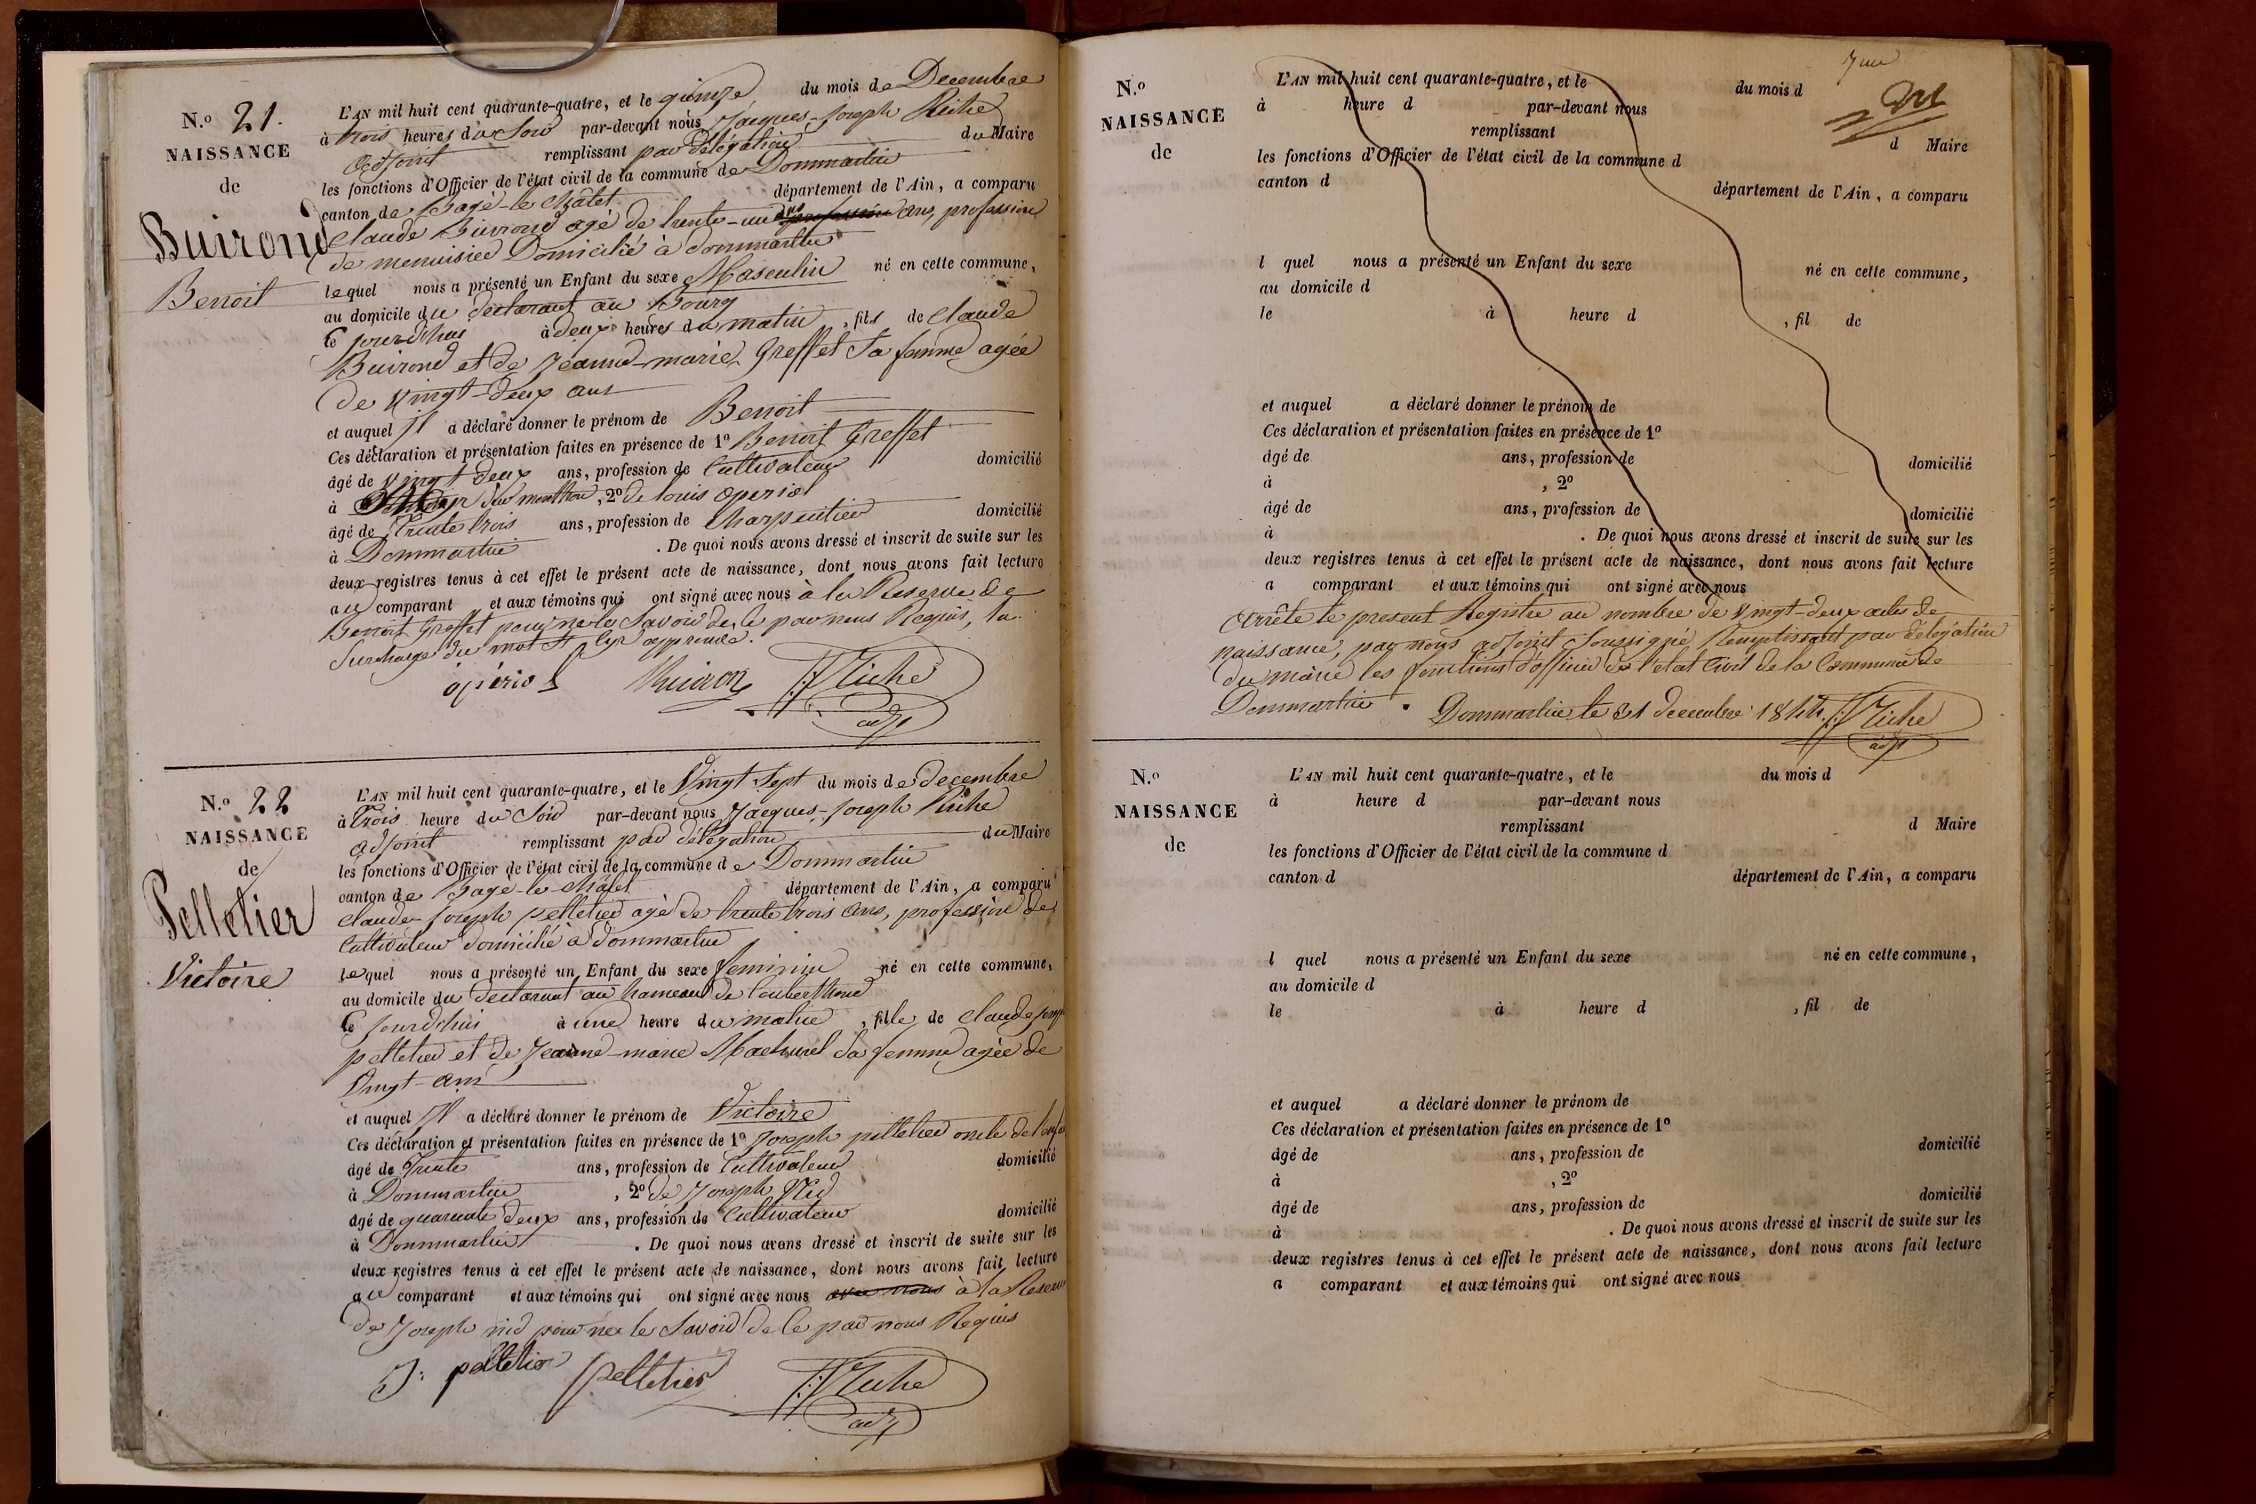 N.º 21.
NAISSANCE
de
Buirond
Benoit
L'AN mil huit cent quarante-quatre, et le quinze du mois de Decembre
à trois heures du Soir par-devant nous Jacques-Joseph Riche
adjoint remplissant par délégation du Maire
les fonctions d'Officier de l'état civil de la commune de Dommartin
canton de Bagé-le-Châtel département de l'Ain, a comparu
Claude Buirond agé de trente-un ans, profession
de menuisier Domicilié à dommartin
lequel nous a présenté un Enfant du sexe Masculin né en cette commune,
au domicile du déclarant au Bourg
Ce jourd'hui à deux heures du matin, fils de Claude
Buirond et de Jeanne-marie Greffet sa femme agée
de Vingt-deux ans
et auquel il a déclaré donner le prénom de Benoit
Ces déclaration et présentation faites en présence de 1º Benoit Greffet
âgé de vingt deux ans, profession de Cultivateur domicilié
à St Cyr sur menthon, 2º de Louis Opériol
âgé de Trente trois ans, profession de Charpentier domicilié
à Dommartin. De quoi nous avons dressé et inscrit de suite sur les
deux registres tenus à cet effet le présent acte de naissance, dont nous avons fait lecture
au comparant et aux témoins qui ont signé avec nous à la Reserve de
Benoit Greffet pour ne le Savoir de ce par nous Requis, la
Surcharge du mot St Cyr approuvée.
opériol Buirond Riche
adj
N.º 22
NAISSANCE
de
Pelletier
Victoire
L'AN mil huit cent quarante-quatre, et le Vingt Sept du mois de decembre
à Trois heure du Soir par-devant nous Jacques-Joseph Riche
adjoint remplissant par délégation du Maire
les fonctions d'Officier de l'état civil de la commune de Dommartin
canton de Bagé-le-Châtel département de l'Ain, a comparu
Claude-Joseph pelletier agé de trente trois ans, profession de
Cultivateur domicilié à dommartin
lequel nous a présenté un Enfant du sexe feminin né en cette commune,
au domicile du declarant au hameau de
Ce jourd'hui à une heure du matin, fille de Claude Joseph
pelletier et de Jeanne-marie sa femme agée de
Vingt-ans
et auquel il a déclaré donner le prénom de Victoire
Ces déclaration et présentation faites en présence de 1º Joseph pelletier oncle de
âgé de Trente ans, profession de Cultivateur domicilié
à Dommartin, 2º de Joseph Nid
âgé de quarante deux ans, profession de Cultivateur domicilié
à Dommartin. De quoi nous avons dressé et inscrit de suite sur les
deux registres tenus à cet effet le présent acte de naissance, dont nous avons fait lecture
au comparant et aux témoins qui ont signé avec nous avec nous à la Reserve
de Joseph nid pour ne le Savoir de ce par nous Requis
J. pelletier pelletier Riche
adj
N.º
NAISSANCE
de
L'AN mil huit cent quarante-quatre, et le du mois d
à heure d par-devant nous
remplissant d Maire
les fonctions d'Officier de l'état civil de la commune d
canton d département de l'Ain, a comparu
l quel nous a présenté un Enfant du sexe né en cette commune,
au domicile d
le à heure d , fil de
et auquel a déclaré donner le prénom de
Ces déclaration et présentation faites en présence de 1º
âgé de ans, profession de domicilié
à , 2º
âgé de ans, profession de domicilié
à . De quoi nous avons dressé et inscrit de suite sur les
deux registres tenus à cet effet le présent acte de naissance, dont nous avons fait lecture
a comparant et aux témoins qui ont signé avec nous
Arrêté le present Registre au nombre de Vingt-deux actes de
naissance, par nous adjoint Soussigné, Remplissant par délégation
du maire les fonctions d'officier de l'état Civil de la Commune de
Dommartin. Dommartin le 31 decembre 1844 Riche
adj
N.º
NAISSANCE
de
L'AN mil huit cent quarante-quatre, et le du mois d
à heure d par-devant nous
remplissant d Maire
les fonctions d'Officier de l'état civil de la commune d
canton d département de l'Ain, a comparu
l quel nous a présenté un Enfant du sexe né en cette commune,
au domicile d
le à heure d , fil de
et auquel a déclaré donner le prénom de
Ces déclaration et présentation faites en présence de 1º
âgé de ans, profession de domicilié
à , 2º
âgé de ans, profession de domicilié
à . De quoi nous avons dressé et inscrit de suite sur les
deux registres tenus à cet effet le présent acte de naissance, dont nous avons fait lecture
a comparant et aux témoins qui ont signé avec nous